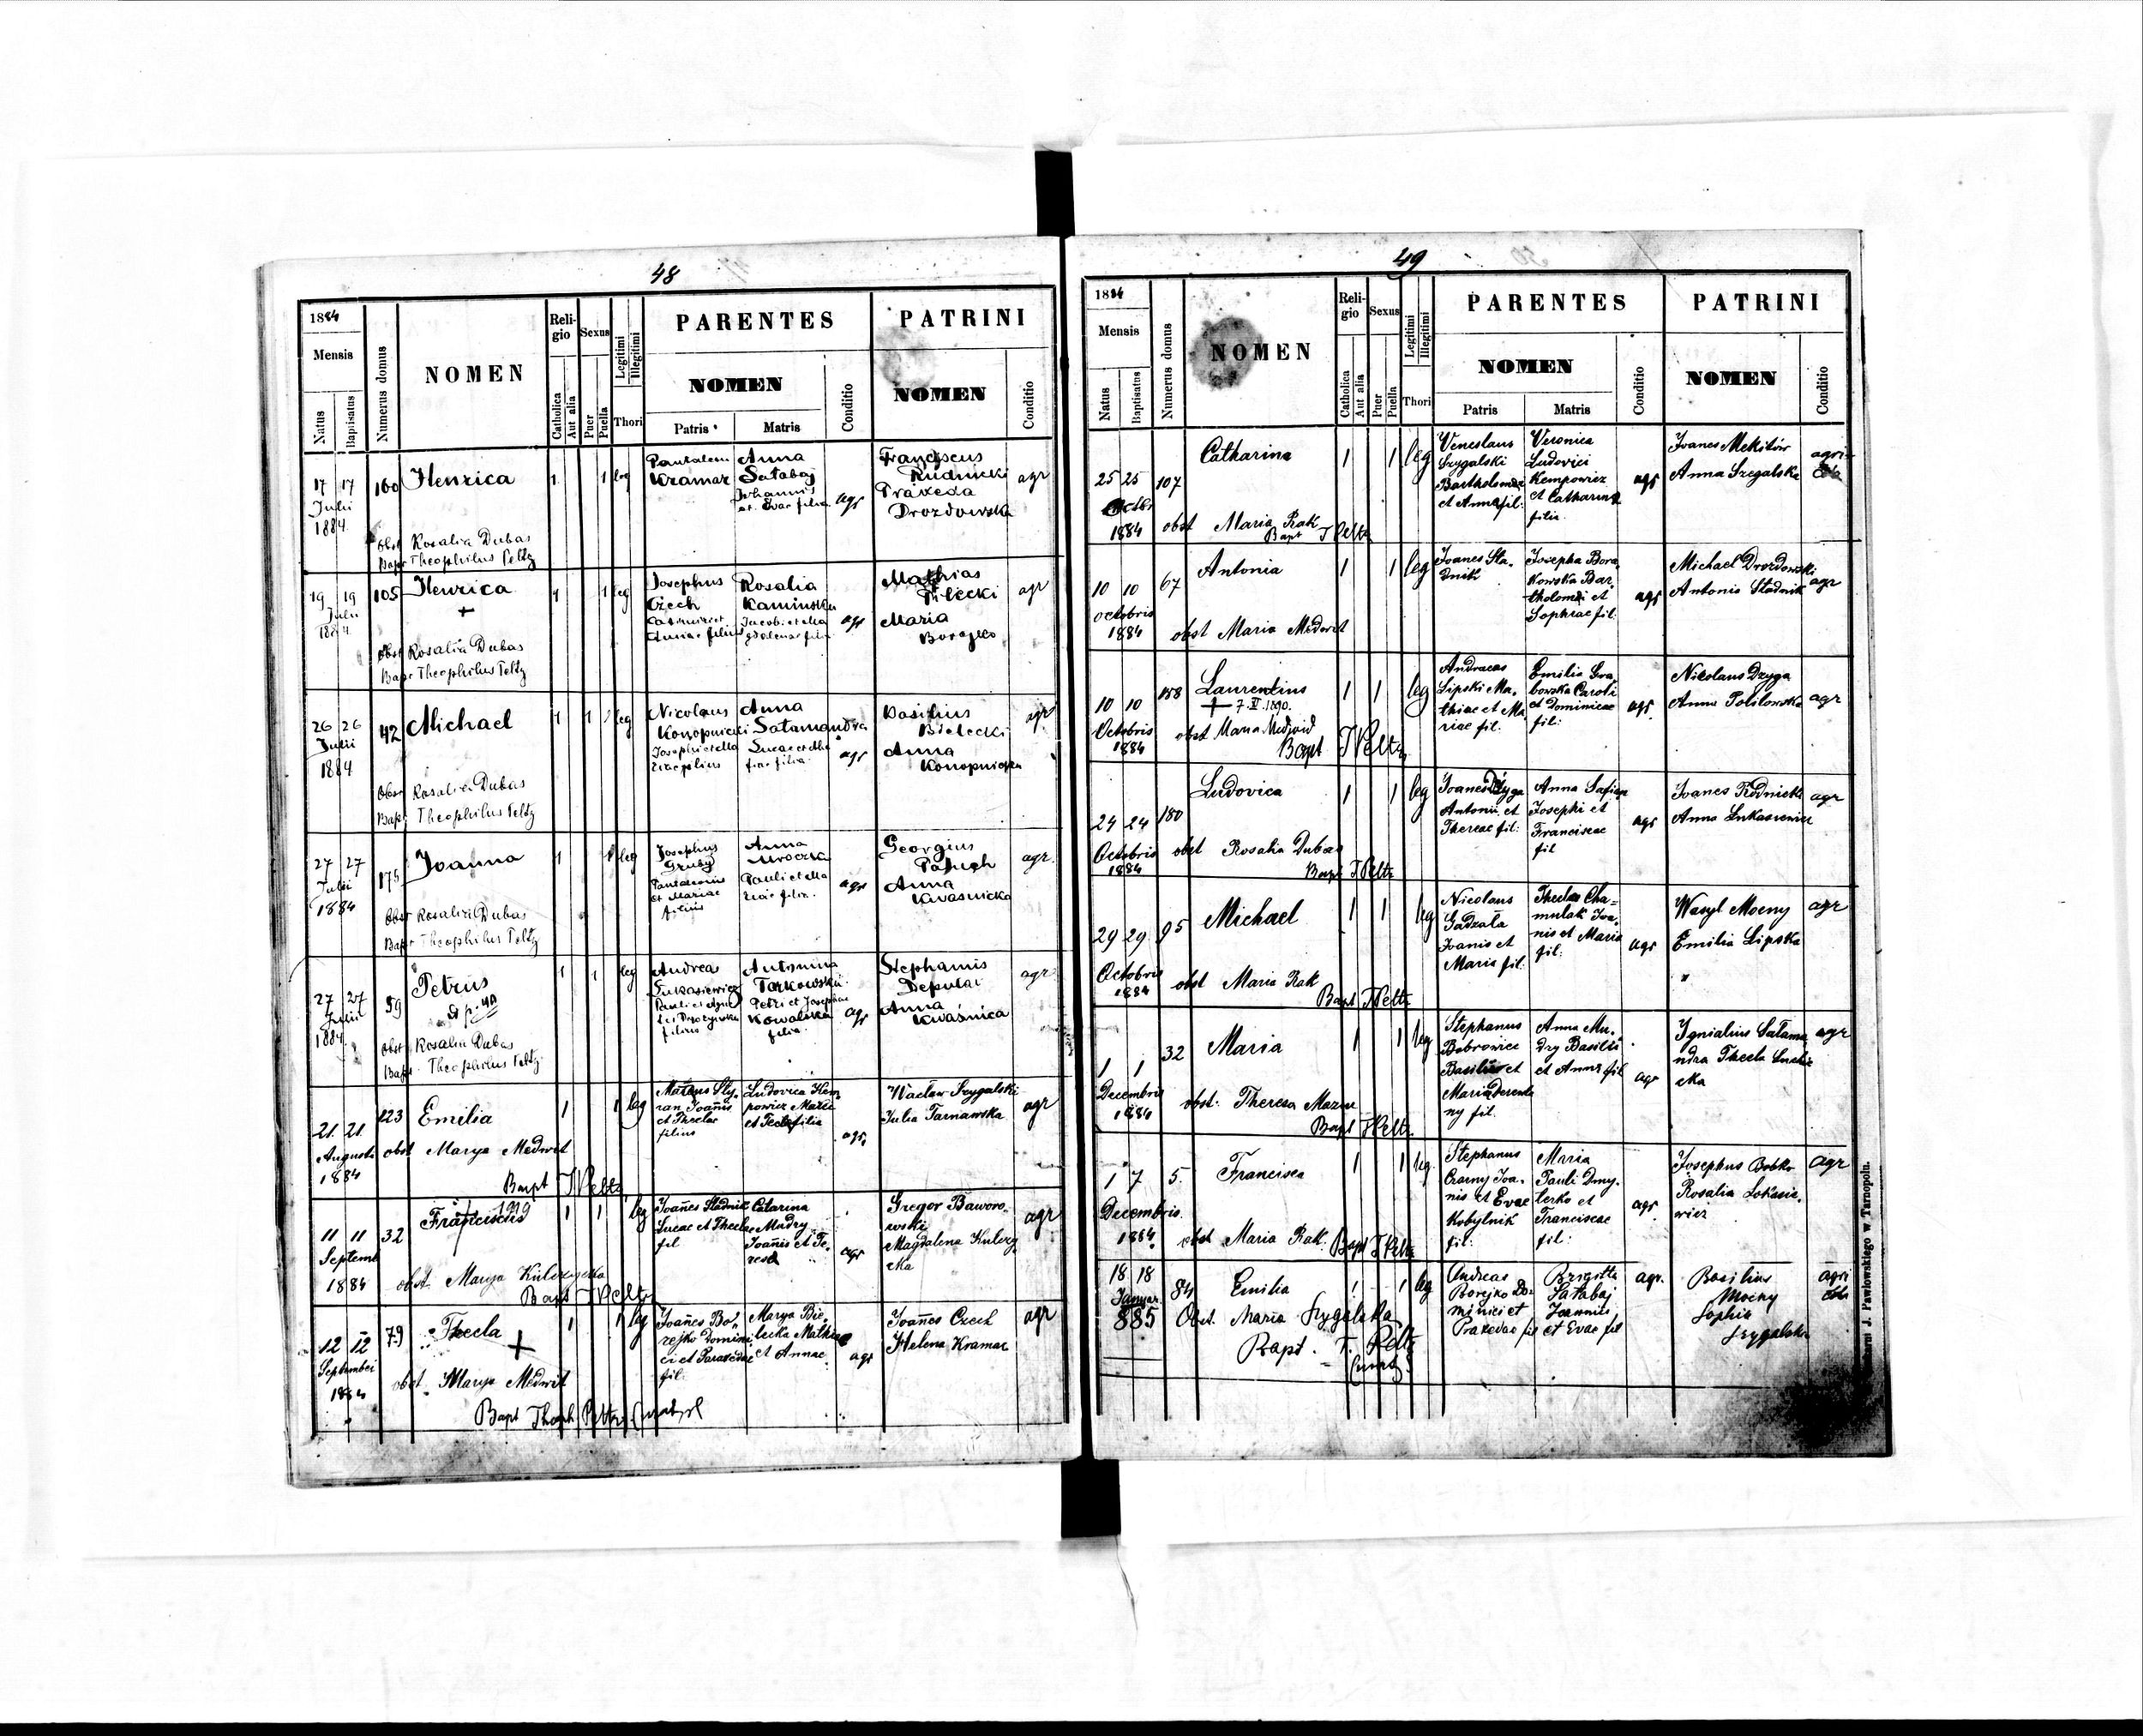 48
1884
Mensis
Natus
Baptisatus
Numerus domus
NOMEN
Reli-
gio
Catholica
Aut alia
Sexus
Puer
Puella
Legitimi
Illegitimi
Thori
PARENTES
NOMEN
Patris
Matris
Conditio
PATRINI
NOMEN
Conditio
17 17
Julii
1884
160
Henrica
1 1 leg
Pantaleon
Kramar
Anna
Sałabaj
Johannis
et Evae filia
agr
Franciscus
Rudnicki
Praxeda
Drozdowska
agr
Obst Rosalia Dubas
Bapt Theophilus Peltz
19 19
Julii
1884
105
Henrica
+
1 1 leg
Josephus
Czech
Casimiri et
Annae filius
Rosalia
Kaminska
Jacobi et Ma
gdalenae filia
agr
Mathias
Bilecki
Maria
Borejko
agr
Obst Rosalia Dubas
Bapt Theophilus Peltz
26 26
Julii
1884
42
Michael
1 1 leg
Nicolaus
Konopnicki
Josephi et Ma
riae filius
Anna
Sałamandra
Lucae et
filia
agr
Basilius
Bielecki
Anna
Konopnicka
agr
Obst Rosalia Dubas
Bapt Theophilus Peltz
27 27
Julii
1884
175
Joanna
1 1 leg
Josephus
Gruby
Pantaleonis
et Mariae
filius
Anna
Mroczka
Pauli et Ma
riae filia
agr
Georgius
Paluch
Anna
Kwasnicka
agr.
Obst Rosalia Dubas
Bapt Theophilus Peltz
27 27
Julii
1884
59
Petrus
1 1 leg
Andrea
Łukasiewicz
Pauli et
filius
Antonina
Tarkowska
Petri et Josephae
Kowalska
filia
agr
Stephanus
Deputat
Anna
Kwaśnica
agr
Obst Rosalia Dubas
Bapt. Theophilus Peltz
21. 21.
Augusti
1884
123
Emilia
1 1 leg
ran Joañis
et Theclae
filius
Ludovica Kem
powicz Mattei
et Teclae filia
agr
Wacław Szygalski
Julia Tarnawska
agr
obst Marya Medwit
Bapt T Peltz
11 11
Septemb
1884
32
Franciscus
1919
1 1 leg
Joañes Stadnik
Lucae et Theclae
fil
Catarina
Mudry
Joañis et Te
resa
agr
Gregor Baworo
wski
Magdalena Kulczy
cka
agr
obst Marya Kulczycka
Bapt T Peltz
12 12
Septembri
1884
79
Thecla
+
1 1 leg
Joañes Bo
rejko Domini
ci et Paraxedae
fil:
Marya Bie
lecka Mathiae
et Annae
agr
Joañes Czech
Helena Kramar
agr
obst Marya Medwit
Bapt Theoph Peltz
49
1884
Mensis
Natus
Baptisatus
Numerus domus
NOMEN
Reli-
gio
Catholica
Aut alia
Sexus
Puer
Puella
Legitimi
Illegitimi
Thori
PARENTES
NOMEN
Patris
Matris
Conditio
PATRINI
NOMEN
Conditio
25 25
Octobr
1884
107
Catharina
1 1 leg
Venceslaus
Szygalski
Bartholomaei
et Annae fil:
Veronica
Ludovici
Kempowicz
et Catharina
filia
agr
Joanes Mekitów
Anna Szegalska
agri
obst Maria Rak
Bapt T Peltz
10 10
octobris
1884
67
Antonia
1 1 leg
Joanes Sta
dnik
Josepha Bora
kowska Bar
tholomei et
Sophiae fil:
agr
Michael Drozdowski
Antonia Stadnik
agr
obst Maria Medwit
10 10
Octobris
1884
158
Laurentius
+ 7. II. 1890.
1 1 leg
Andreas
Lipski Ma
thiae et Ma
riae fil.
Emilia Gra
bowska Caroli
et Dominicae
fil:
agr
Nicolaus Dzyga
Anna Polilowska
agr
obst Maria Medwid
Bapt T Peltz
24 24
Octobris
1884
180
Ludovica
1 1 leg
Joanes Dzyga
Antonii et
Theresae fil:
Anna Safian
Josephi et
Franciscae
fil
agr
Joanes Rudnicki
Anna Lukasiewicz
agr
obst Rosalia Dubas
Bapt T Peltz
29 29.
Octobris
1884
95
Michael
1 1 leg
Nicolaus
Gadzała
Joanis et
Maria fil:
Thecla Cha=
mulak Joa
nis et Maria
fil:
agr
Wasyl Mocny
Emilia Lipska
agr
obst Maria Rak
Bapt T Peltz
1 1
Decembris
1884
32
Maria
1 1 leg
Stephanus
Bobrowicz
Basilius et
Maria
ny fil
Anna Mu
dry Basilii
et Anna fil
agr
Ignatius Sałama
ndra Thecla
cka
agr
obst: Theresa Mazur
Bapt T Peltz
1 7
Decembris
1884
5.
Francisca
1 1 leg.
Stephanus
Czarny Joa
nis et Evae
Kobylnik
fil:
Maria
Pauli Dmy
terko et
Franciscae
fil:
agr
Josephus Bobko
Rosalia Lokasie
wicz
agr
obst Maria Rak.
Bapt T Peltz
18 18
Januar.
885
84
Emilia
1 1 leg
Andreas
Borejko Do
minici et
Praxedae fil
Brigitta
Sałabaj
Joannis
et Evae fil
agr.
Basilius
Mocny
Sophia
Szygalska
agri
Obst. Maria Szygalska
Bapt. T. Peltz
J. Pawłowskiego w Tarnopolu.